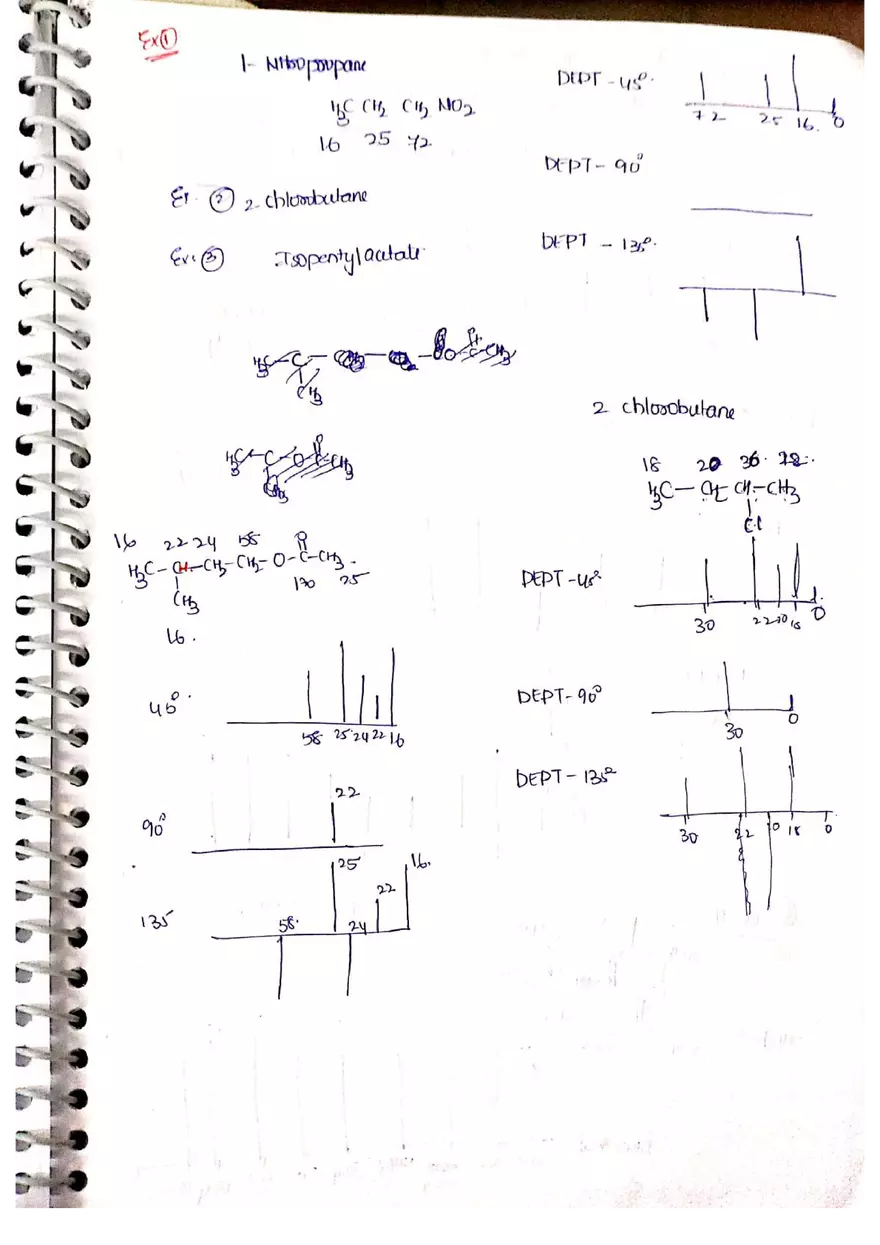 Ex①
1- Nitropropane
H3C CH2 CH2 NO2
16 25 72
Ex. ② 2 chlorobutane
Ex: ③ Isopentyl acetate
DEPT - 45°.
72 25 16. 0
DEPT - 90°
DEPT - 135°.
H3C-C-
CH3
H3C-C-O-C-CH3
16 22 24 58
H3C-CH-CH2-CH2-O-C-CH3.
O
CH3
170 25
16.
45°.
58 25 24 22 16
90°
22
135
58. 25 24 22 16.
2 chlorobutane
18 20 36.
H3C-CH2 CH-CH3
Cl
DEPT-45°
30 22 20 18 0
DEPT-90°
30 0
DEPT-135°
30 22 20 18 0